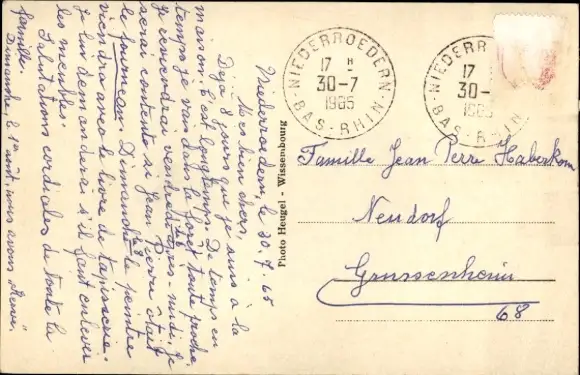 Niederroedern, le 30.7.65
Mes bien chers,
Déjà 8 jours que je suis à la
maison. C'est longtemps. De temps en
temps je vais dans la forêt toute proche.
Je reviendrai vendredi après-midi. Je
serai contente si Jean Pierre était
le fourneau. Dimanche le peintre
viendra avec le livre de tapisserie.
Je lui demanderai s'il faut enlever
les meubles.
Salutations cordiales de toute la
famille.
Dimanche, le 1er août, nous avons
Photo Heugel - Wissembourg
NIEDERROEDERN
17 H
30-7
1965
BAS-RHIN
NIEDERR
17
30-
1965
BAS-RHIN
Famille Jean Pierre Haberkorn
Neudorf
Grussenheim
68